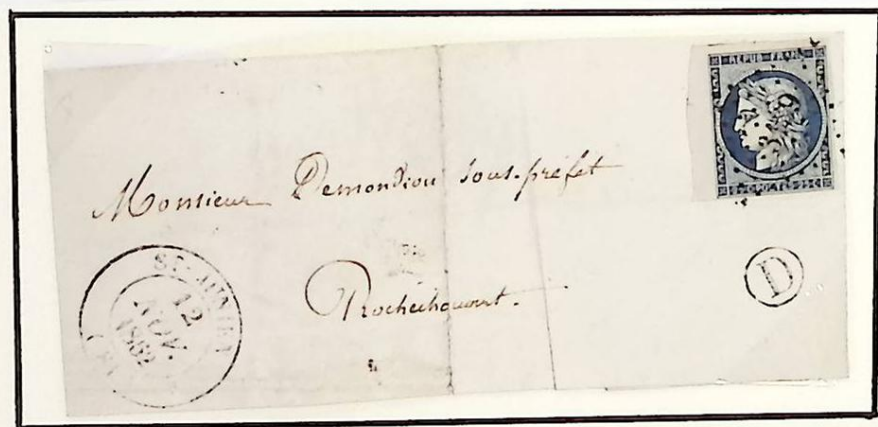 REPUB·FRANC
Monsieur Demondion sous-préfet
Rochechouart.
ST-JUNIEN
12
NOV.
1852
D